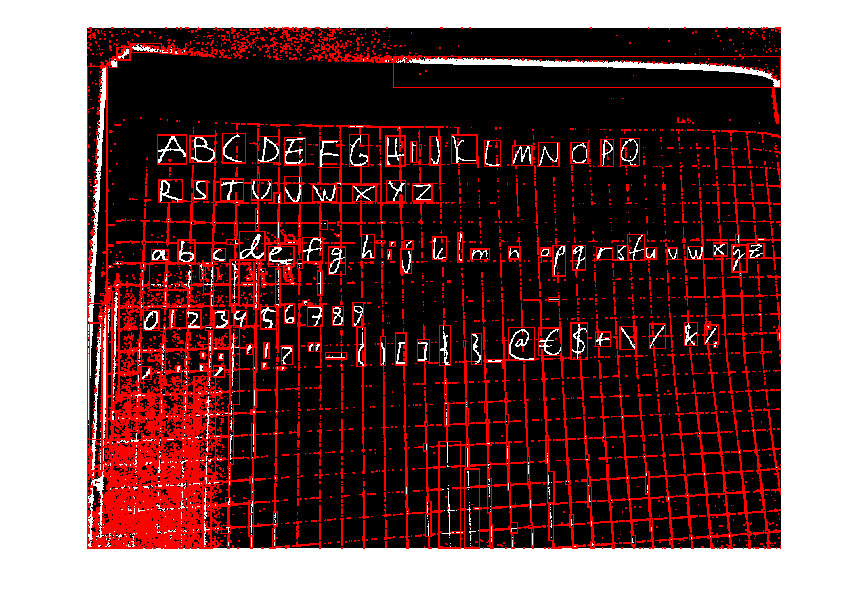 A B C D E F G H I J K L M N O P Q
R S T U V W X Y Z
a b c d e f g h i j k l m n o p q r s t u v w x y z
0 1 2 3 4 5 6 7 8 9
, . : ; ' ! ? " - ( ) [ ] { } _ @ € $ + \ / k %